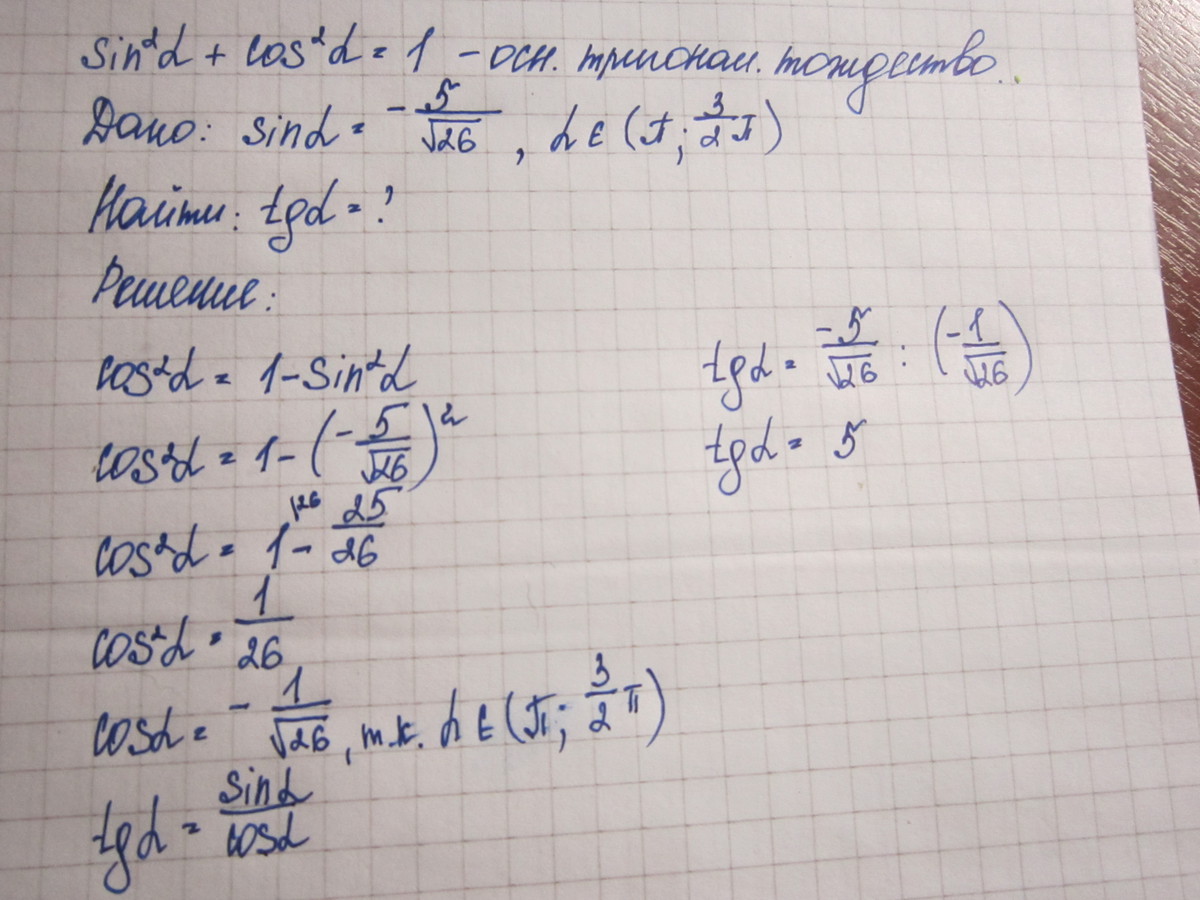 sin²α + cos²α = 1 - осн. тригоном. тождество.
Дано: sinα = -5/√26, α ∈ (π; 3/2 π)
Найти: tgα = ?
Решение:
cos²α = 1 - sin²α
cos²α = 1 - (-5/√26)²
cos²α = 1 |26 - 25/26
cos²α = 1/26
cosα = - 1/√26, т.к. α ∈ (π; 3/2 π)
tgα = sinα/cosα
tgα = -5/√26 : (-1/√26)
tgα = 5